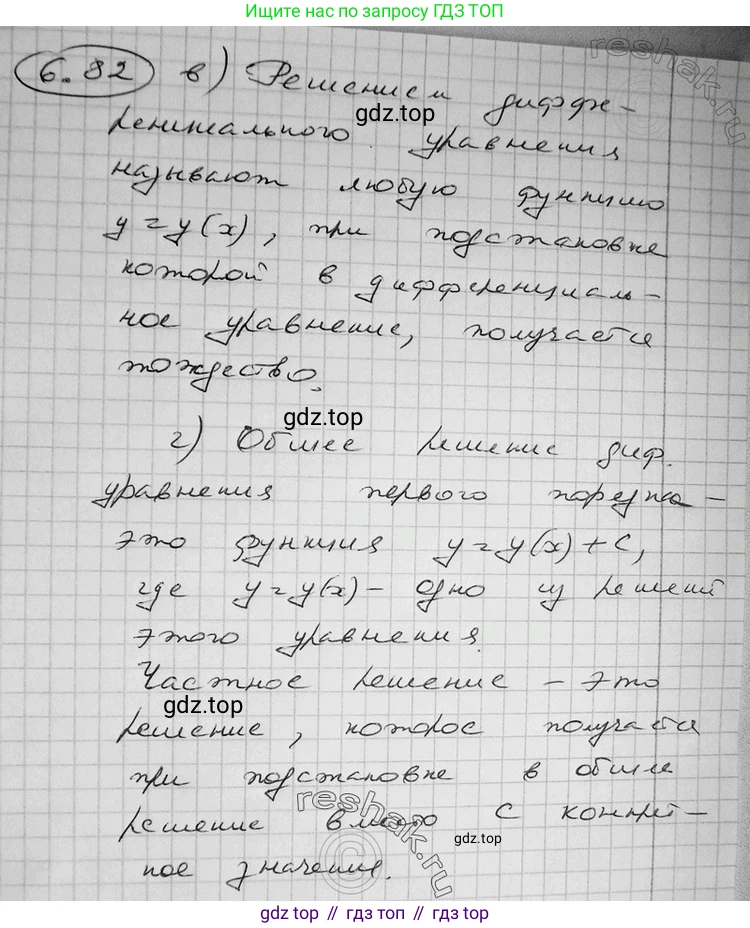 Ищите нас по запросу ГДЗ ТОП
6.82 в) Решением диффе-
gdz.top
ренциального уравнения
называют любую функцию
y = y(x), при подстановке
которой в дифференциаль-
ное уравнение, получается
тождество.
gdz.top
г) Общее решение диф.
уравнения первого порядка -
это функция y = y(x) + C,
где y = y(x) - одно из решений
этого уравнения.
Частное решение - это
gdz.top
решение, которое получается
при подстановке в общее
решение вместо C конкрет-
gdz.top
ное значение.
reshak.ru
reshak.ru
gdz.top // гдз топ // gdz.top